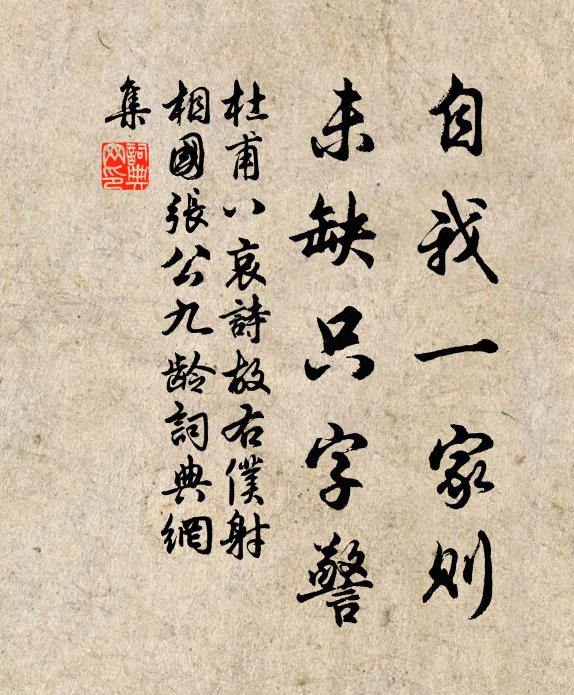 自我一家则
未缺只字警
杜甫八哀詩故右僕射
相國張公九龄詞典網
集
詞典
网印